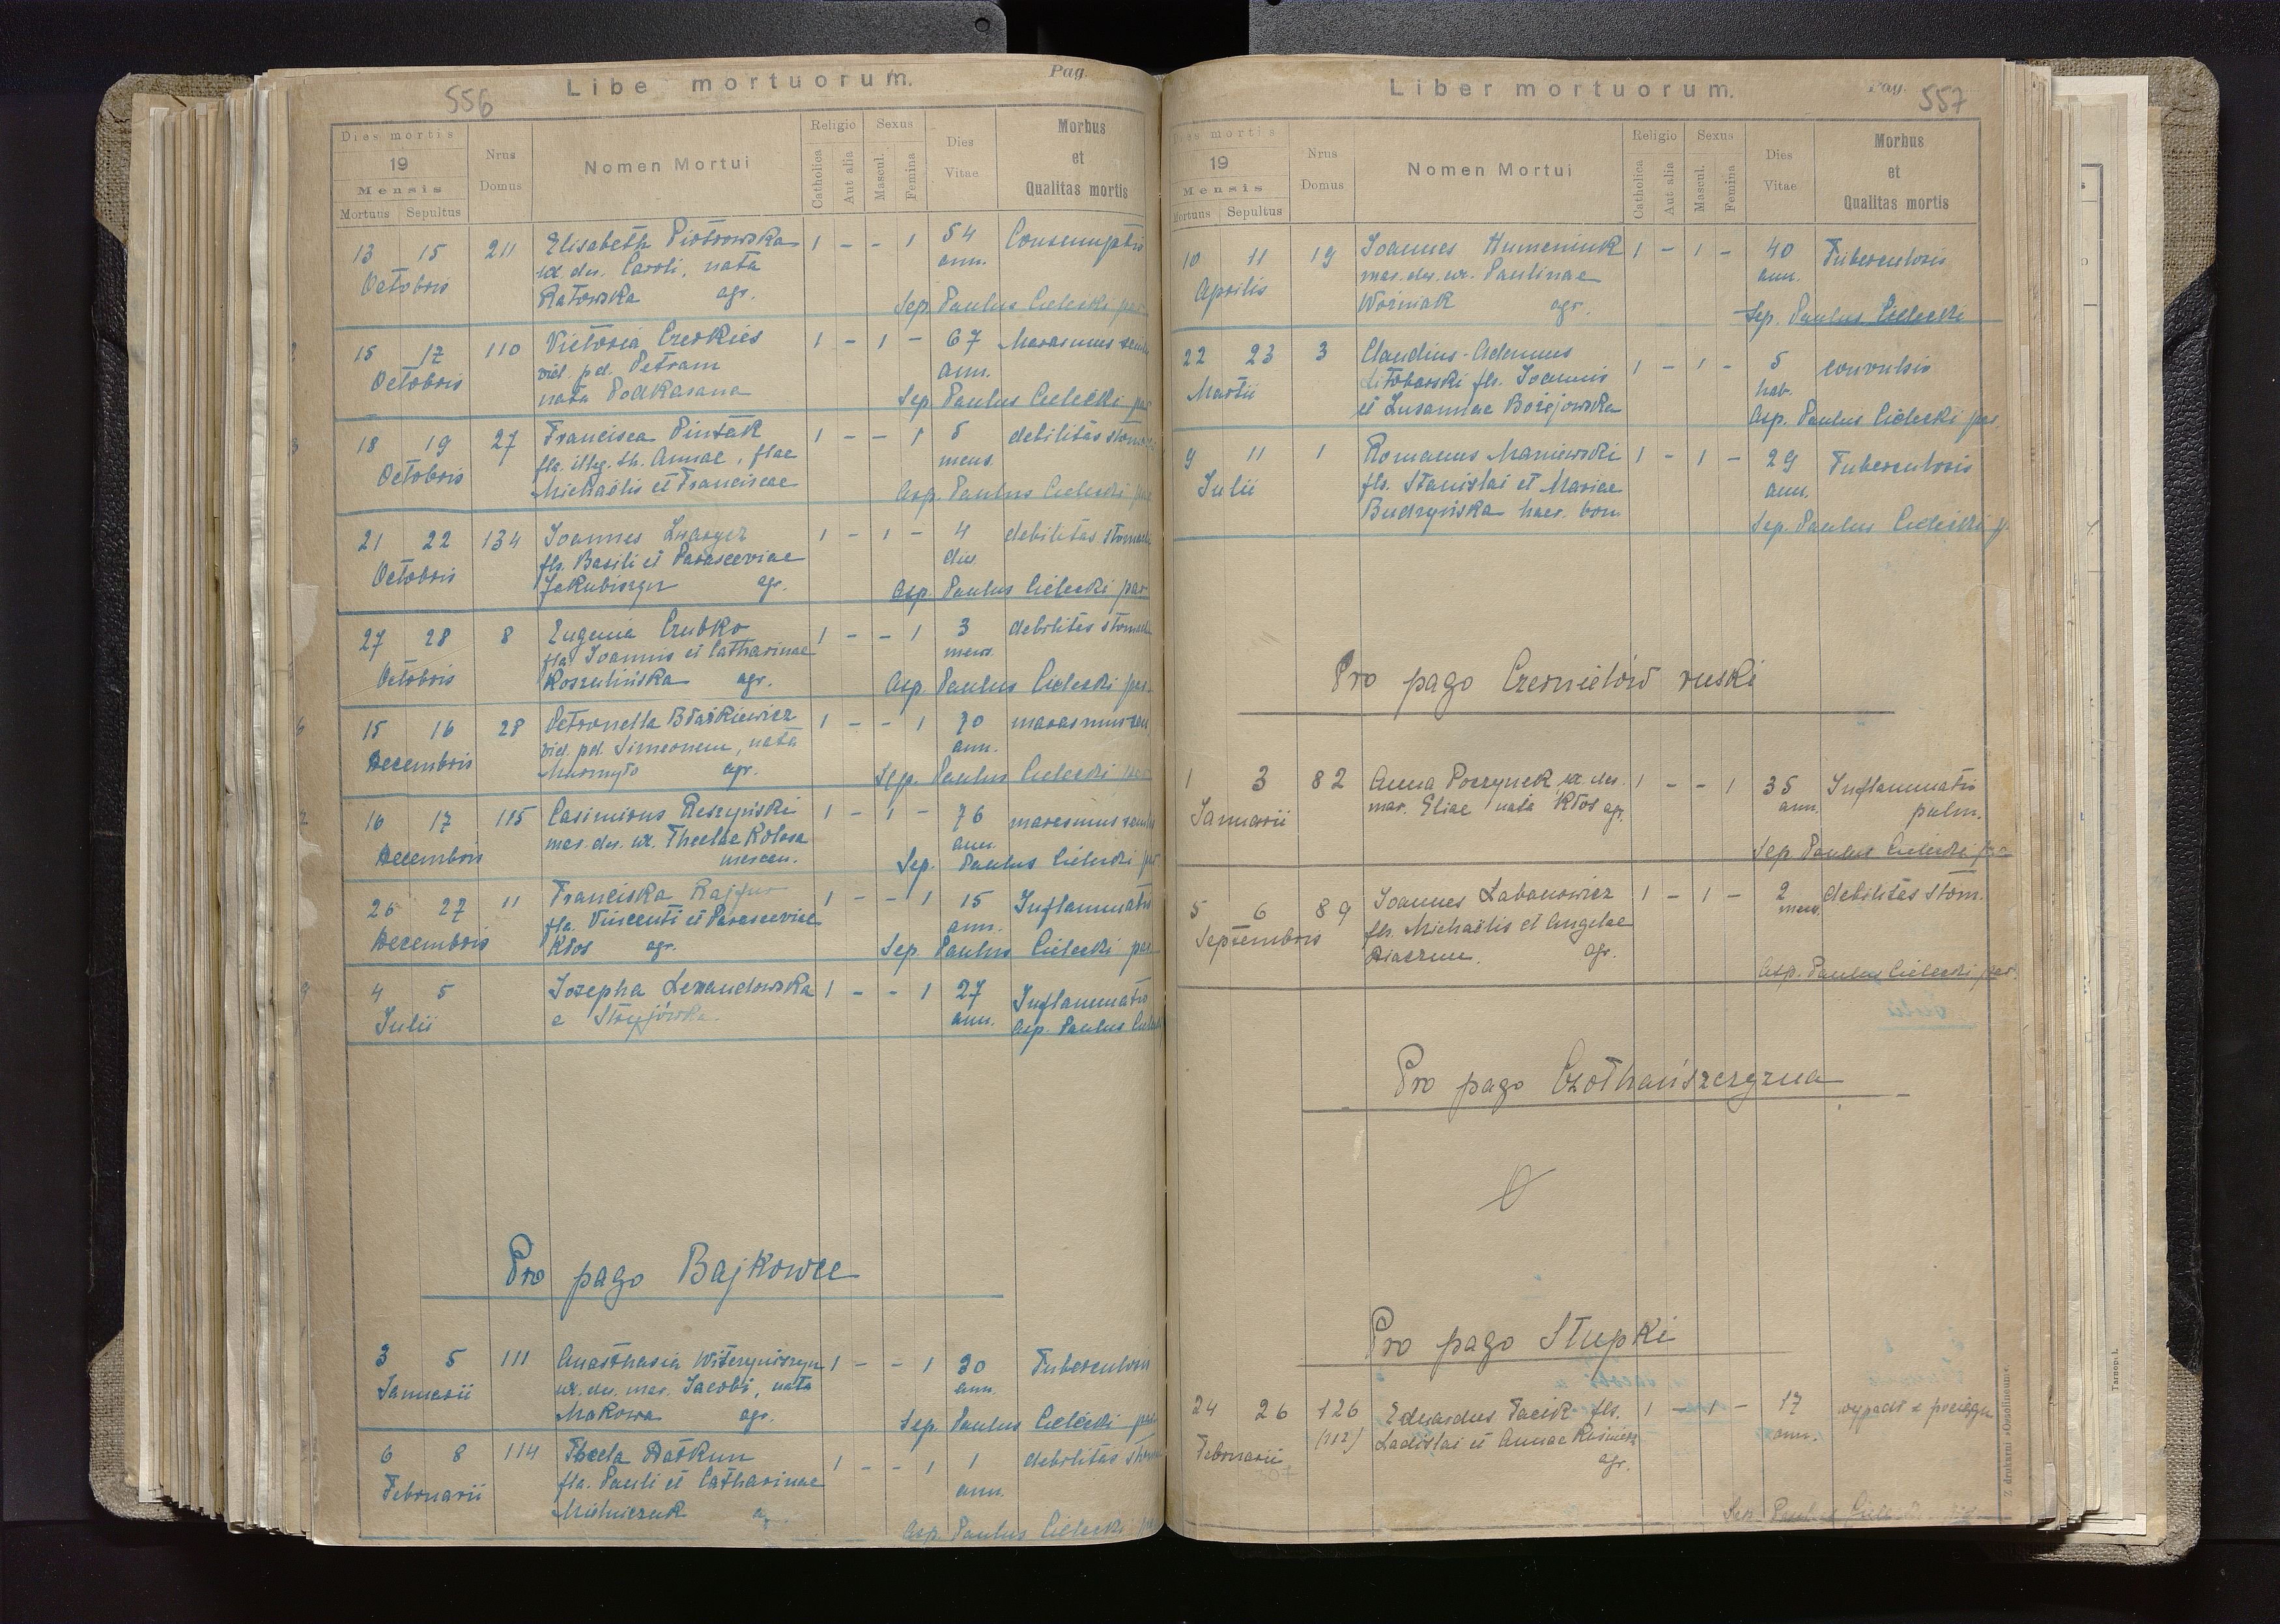 556
Libe mortuorum.
Pag.
Dies mortis
19
Mensis
Mortuus Sepultus
Nrus
Domus
Nomen Mortui
Religio
Catholica
Aut alia
Sexus
Mascul.
Femina
Dies
Vitae
Morbus
et
Qualitas mortis
13 15 211 Elisabeth Piotrowska 1 - - 1 54 Consumptio
Octobris ux. der. Caroli, nata ann.
Ratowska agr. Sep. Paulus Cielecki par
15 17 110 Victoria Czerkies 1 - 1 - 67 Marasmus senil
Octobris vid. pd. Petrum ann.
nata Podkasana Sep. Paulus Cielecki par
18 19 27 Francisca Pintak 1 - - 1 5 debilitas stom
Octobris fla. illeg. th. Annae, flae mens.
Michaëlis et Franciscae Asp. Paulus Cielecki par
21 22 134 Joannes 1 - 1 - 4 debilitas stomach
Octobris fls. Basili et Parasceviae dies
Jakubiszyn agr. Asp. Paulus Cielecki par
27 28 8 Eugenia Czubko 1 - - 1 3 debilitas stomach
Octobris fla Joannis et Catharinae mens.
Koszulińska agr. Asp. Paulus Cielecki par.
15 16 28 Petronella Błaśkiewicz 1 - - 1 70 marasmus sen
Decembris vid. pd. Simeonem, nata ann.
agr. Sep. Paulus Cielecki par
16 17 115 Casimirus Reszyński 1 - 1 - 76 marasmus senil
Decembris mar. der. ux. Theclae Kolosa ann.
mercen. Sep. Paulus Cielecki par
26 27 11 Franciska Rajfur 1 - - 1 15 Inflammatio
Decembris fla. Vincenti et Parasceviae ann.
Kłos agr. Sep. Paulus Cielecki par
4 5 Josepha Lewandowska 1 - - 1 27 Inflammatio
Julii e Stryjówka. ann. Asp. Paulus Cielecki
Pro pago Bajkowce
3 5 111 Anasthasia Witeryniszyn 1 - - 1 30 Tuberculosis
Januarii ux. der. mar. Jacobi, nata ann.
Makowa agr. Sep. Paulus Cielecki par
6 8 114 Thecla Daśkun 1 - - 1 1 debilitas stom
Februarii fla. Pauli et Catharinae ann.
Mielniczuk a Asp. Paulus Cielecki
Liber mortuorum.
Pag.
557
Dies mortis
19
Mensis
Mortuus Sepultus
Nrus
Domus
Nomen Mortui
Religio
Catholica
Aut alia
Sexus
Mascul.
Femina
Dies
Vitae
Morbus
et
Qualitas mortis
10 11 19 Joannes Humeniuk 1 - 1 - 40 Tuberculosis
Aprilis mar. der. ux. Paulinae ann.
Woźniak agr. Sep. Paulus Cielecki
22 23 3 Claudius-Adamus 1 - 1 - 5 convulsio
Martii Litoborski fls. Joannis hor.
et Susannae Bożejowska Asp. Paulus Cielecki par.
9 11 1 Romanus Maniewski 1 - 1 - 29 Tuberculosis
Julii fls. Stanislai et Mariae ann.
Budzyńska haer. bon. Sep. Paulus Cielecki p.
Pro pago Czernielów ruski
1 3 82 Anna Poczynek, ux. der. 1 - - 1 35 Inflammatio
Januarii mar. Eliae nata Kłos agr. ann. pulm.
Sep. Paulus Cielecki par
5 6 89 Joannes Labanowicz 1 - 1 - 2 debilitas stom.
Septembris fls. Michaëlis et Angelae mens.
agr.
Asp. Paulus Cielecki par.
Pro pago Czołhańszczyzna
Pro pago Stupki
24 26 126 Eduardus Pacik fls. 1 - 1 - 17 wypadł z pociągu
Februarii (112) Ladislai et Annae ann.
agr.
Sep. Paulus Cielecki
Z drukarni «Ossolineum».